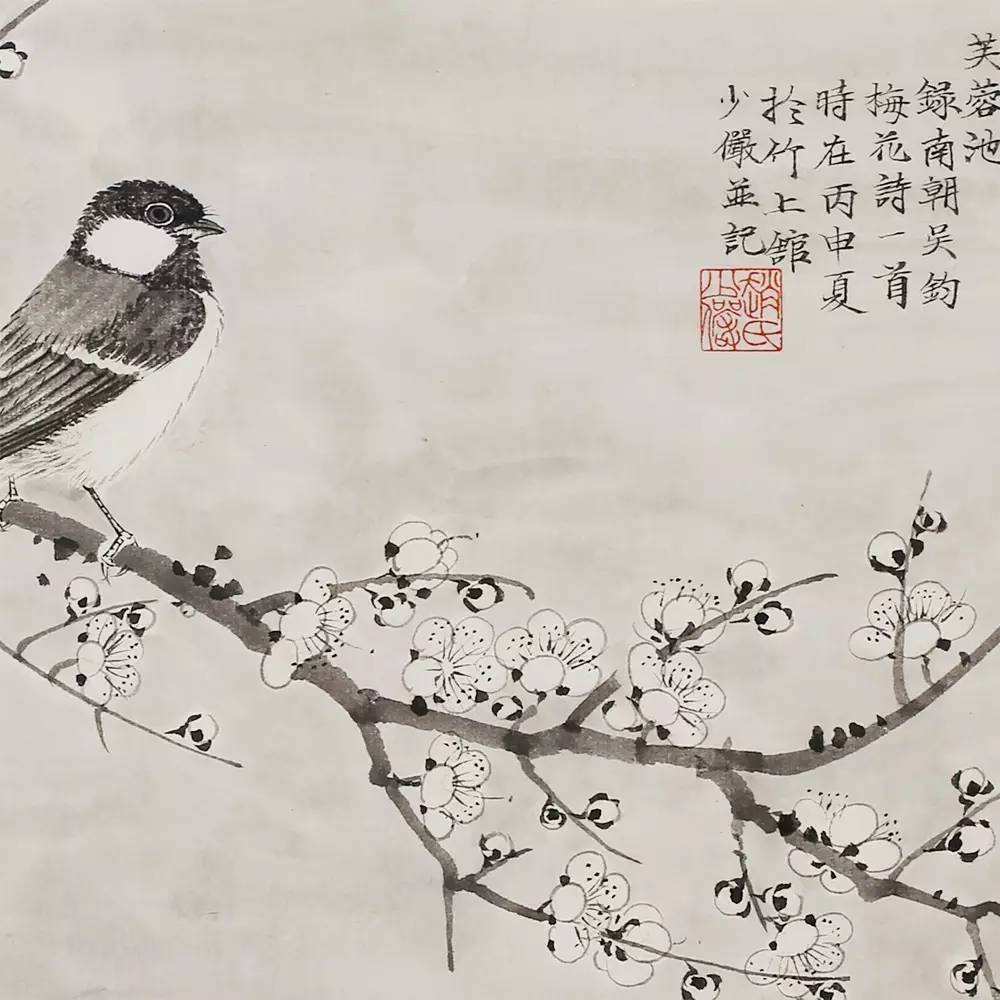 芙蓉池
錄南朝吴鈞
梅花詩一首
時在丙申夏
於竹上舘
少儼並記
趙氏
少儼